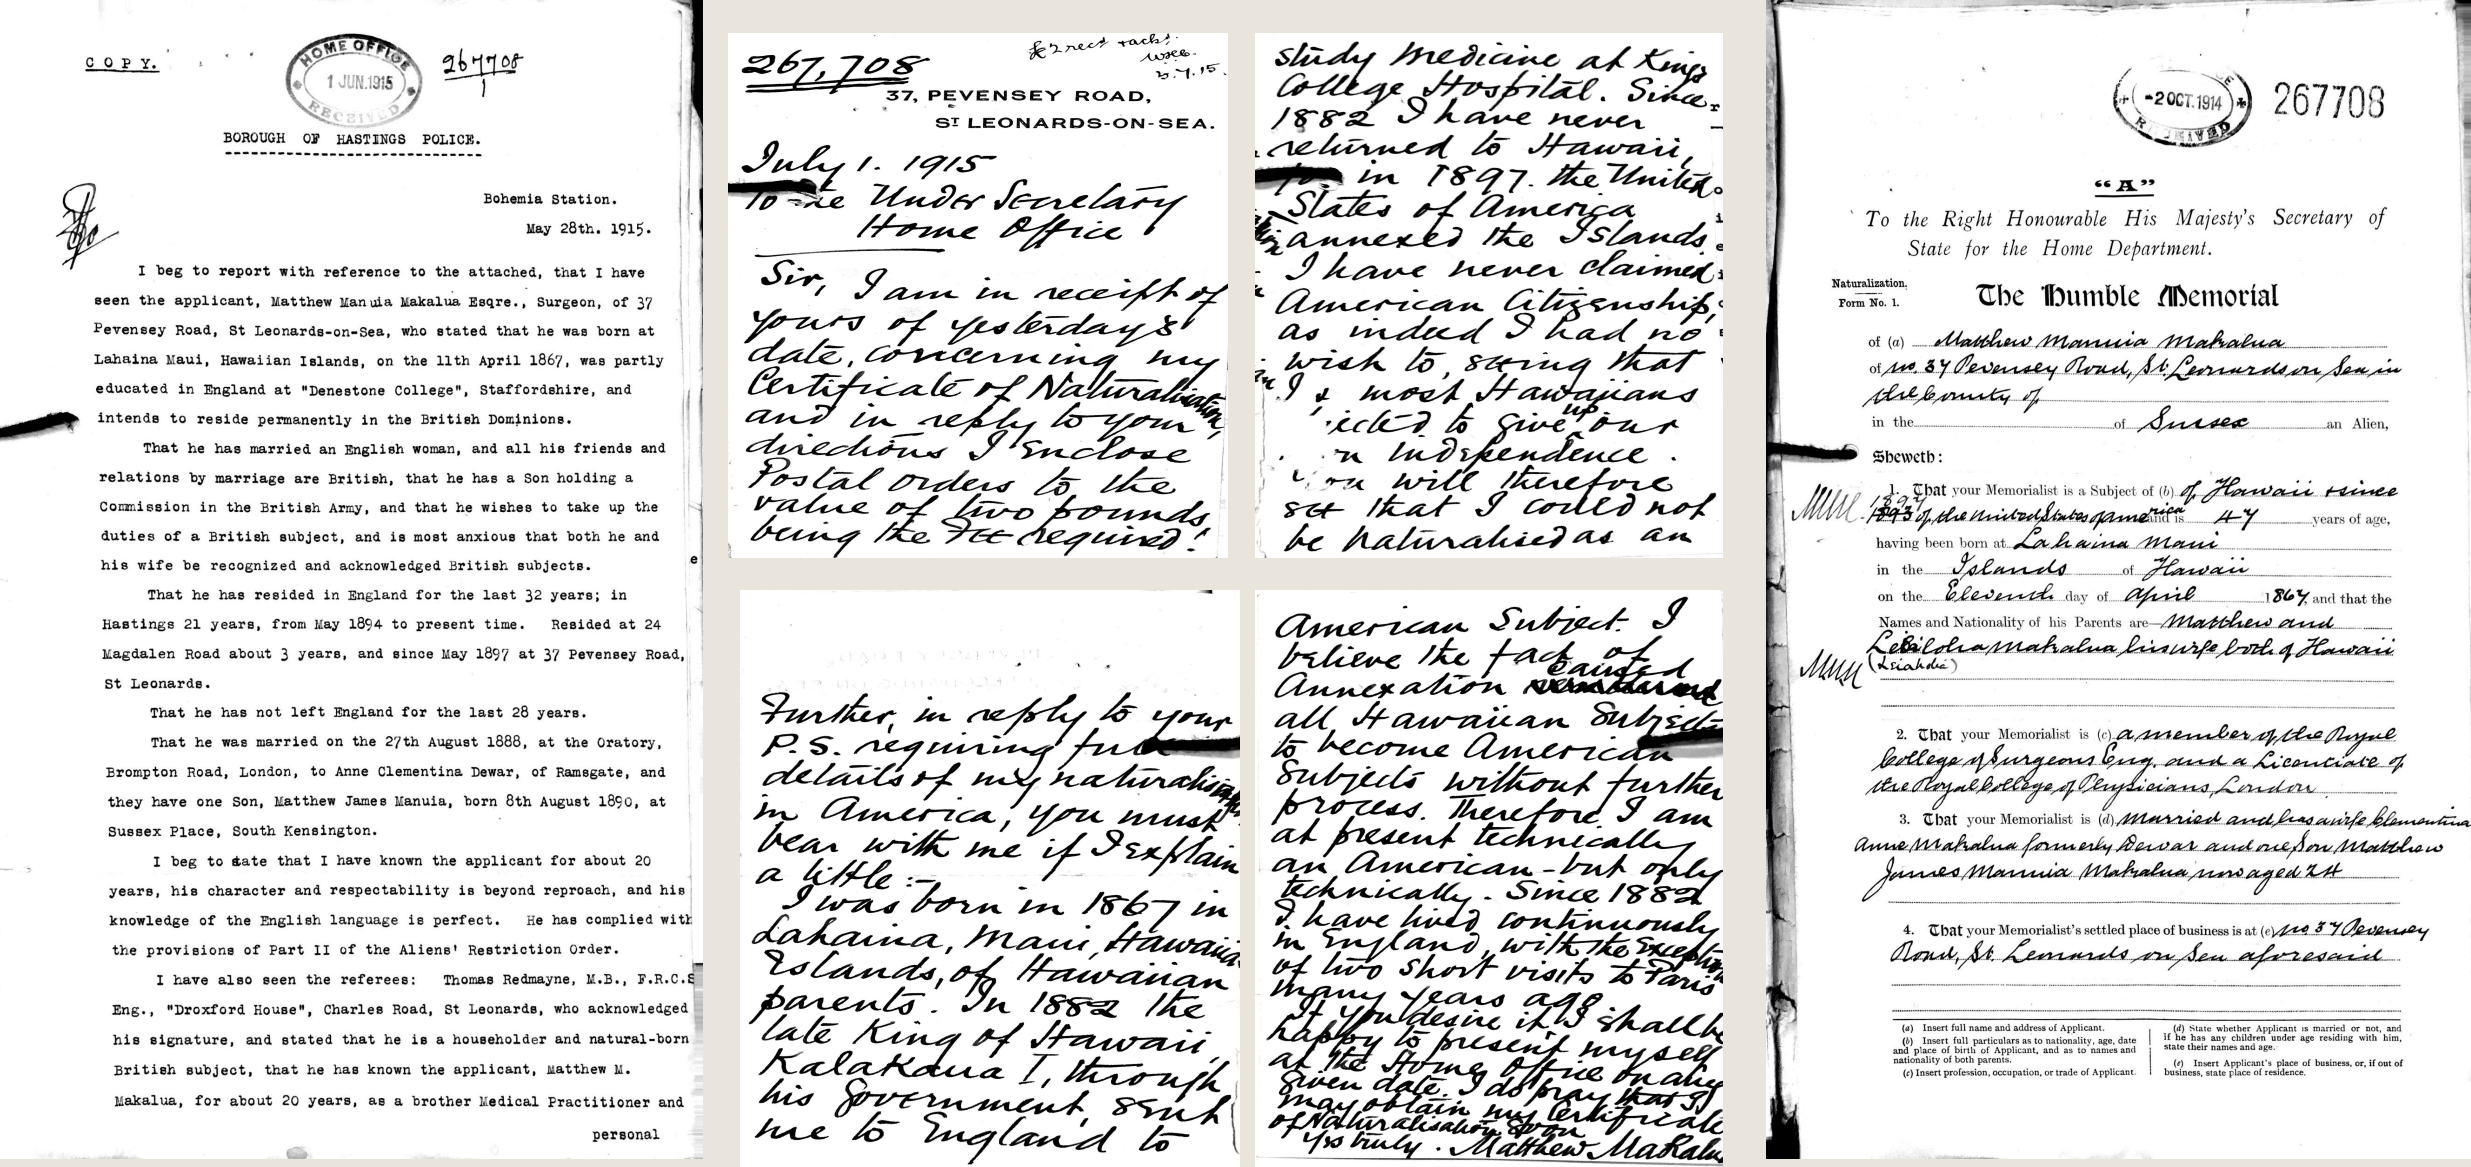 COPY.
HOME OFFICE
1 JUN.1915
RECEIVED
267708
1
BOROUGH OF HASTINGS POLICE.
Bohemia Station.
May 28th. 1915.
I beg to report with reference to the attached, that I have
seen the applicant, Matthew Manuia Makalua Esqre., Surgeon, of 37
Pevensey Road, St Leonards-on-Sea, who stated that he was born at
Lahaina Maui, Hawaiian Islands, on the 11th April 1867, was partly
educated in England at "Denestone College", Staffordshire, and
intends to reside permanently in the British Dominions.
That he has married an English woman, and all his friends and
relations by marriage are British, that he has a Son holding a
Commission in the British Army, and that he wishes to take up the
duties of a British subject, and is most anxious that both he and
his wife be recognized and acknowledged British subjects.
That he has resided in England for the last 32 years; in
Hastings 21 years, from May 1894 to present time. Resided at 24
Magdalen Road about 3 years, and since May 1897 at 37 Pevensey Road,
St Leonards.
That he has not left England for the last 28 years.
That he was married on the 27th August 1888, at the Oratory,
Brompton Road, London, to Anne Clementina Dewar, of Ramsgate, and
they have one Son, Matthew James Manuia, born 8th August 1890, at
Sussex Place, South Kensington.
I beg to state that I have known the applicant for about 20
years, his character and respectability is beyond reproach, and his
knowledge of the English language is perfect. He has complied with
the provisions of Part II of the Aliens' Restriction Order.
I have also seen the referees: Thomas Redmayne, M.B., F.R.C.S
Eng., "Droxford House", Charles Road, St Leonards, who acknowledged
his signature, and stated that he is a householder and natural-born
British subject, that he has known the applicant, Matthew M.
Makalua, for about 20 years, as a brother Medical Practitioner and
personal
267,708
£2 recd
3.7.15.
37, PEVENSEY ROAD,
ST LEONARDS-ON-SEA.
July 1. 1915
To the Under Secretary
Home Office
Sir, I am in receipt of
yours of yesterday's
date, concerning my
Certificate of Naturalisation,
and in reply to your
directions I enclose
Postal orders to the
value of two pounds,
being the Fee required.
Further, in reply to your
P.S. requiring full
details of my naturalisation
in America, you must
bear with me if I explain
a little:—
I was born in 1867 in
Lahaina, Maui, Hawaiian
Islands, of Hawaiian
parents. In 1882 the
late King of Hawaii,
Kalakaua I, through
his Government, sent
me to England to
study medicine at Kings
College Hospital. Since
1882 I have never
returned to Hawaii,
in 1897. the United
States of America
annexed the Islands
I have never claimed
American Citizenship,
as indeed I had no
wish to, seeing that
I & most Hawaiians
to give up our
independence.
will therefore
see that I could not
be naturalised as an
American Subject. I
believe the fact of
Annexation caused
all Hawaiian Subjects
to become American
Subjects without further
process. Therefore I am
at present technically
an American - but only
technically. Since 1882
I have lived continuously
in England, with the exception
of two short visits to Paris
many years ago.
If you desire it I shall be
happy to present myself
at the Home Office on any
given date. I do pray that I
may obtain my Certificate
of Naturalisation soon
Yrs truly. Matthew Makalua
-2 OCT.1914
RECEIVED
267708
"A"
To the Right Honourable His Majesty's Secretary of
State for the Home Department.
Naturalization.
Form No. 1.
The Humble Memorial
of (a) Matthew Manuia Makalua
of no. 37 Pevensey Road, St. Leonards on Sea in
the County of
in the of Sussex an Alien,
Sheweth:
1. That your Memorialist is a Subject of (b) of Hawaii & since
1897
1893 of the United States of America and is 47 years of age,
having been born at Lahaina Maui
in the Islands of Hawaii
on the Eleventh day of April 1867, and that the
Names and Nationality of his Parents are—Matthew and
Makalua his wife both of Hawaii
2. That your Memorialist is (c) a member of the Royal
College of Surgeons Eng. and a Licenciate of
the Royal College of Physicians, London
3. That your Memorialist is (d) married and has a wife Clementina
Anne Makalua formerly Dewar and one Son Matthew
James Manuia Makalua now aged 24
4. That your Memorialist's settled place of business is at (e) no 37 Pevensey
Road, St. Leonards on Sea aforesaid
(a) Insert full name and address of Applicant.
(b) Insert full particulars as to nationality, age, date
and place of birth of Applicant, and as to names and
nationality of both parents.
(c) Insert profession, occupation, or trade of Applicant.
(d) State whether Applicant is married or not, and
if he has any children under age residing with him,
state their names and age.
(e) Insert Applicant's place of business, or, if out of
business, state place of residence.